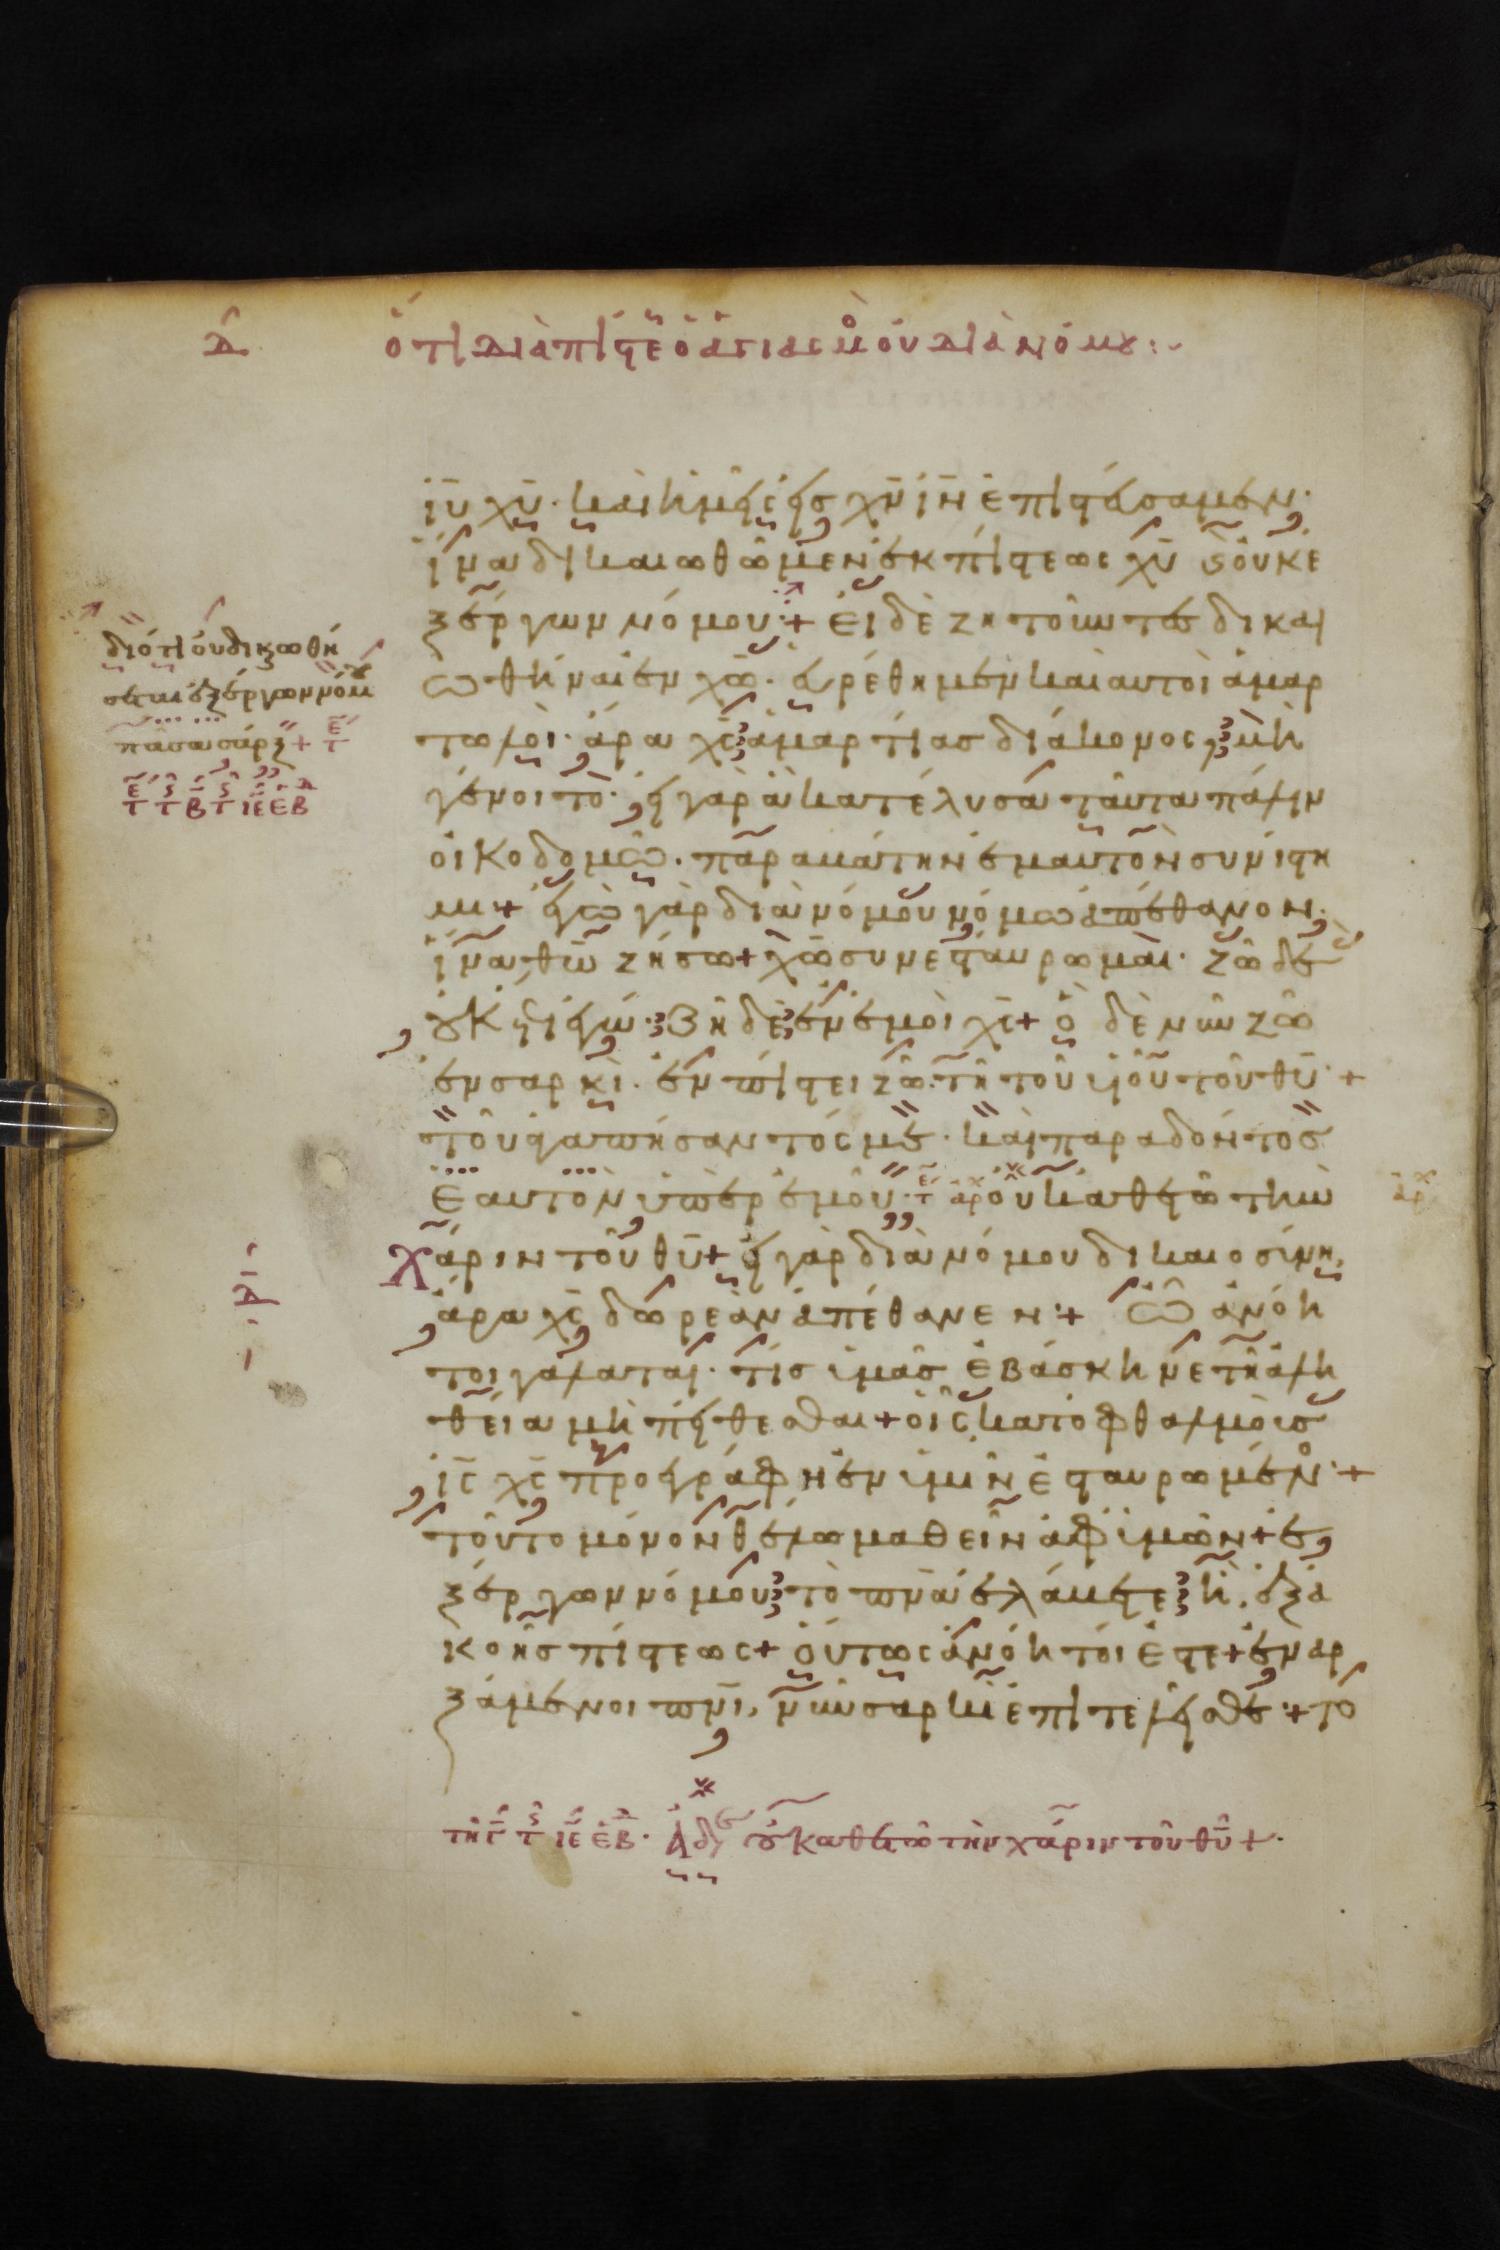 Δ ὅτι διὰ πίστε ὁ ἁγιασμὸ οὐ διὰ νόμου :~
ἰυ χυ· καὶ ἡμεῖς εἰς χν ἰν ἐπιστεύσαμεν·
ἵνα δικαιωθῶμεν ἐκ πίστεως χυ κ οὐκ ἐ
ξ ἔργων νόμου + εἰ δὲ ζητοῦντες δικαι
ωθῆναι ἐν χω· εὑρέθημεν καὶ αυτοὶ ἁμαρ
τωλοὶ· ἄρα χς ἁμαρτίας διάκονος; μὴ
γένοιτο· εἰ γὰρ ἃ κατέλυσα ταῦτα πάλιν
οἰκοδομῶ· παραβάτην ἐμαυτὸν συνίστη
μι + ἐγὼ γὰρ διὰ νόμου νόμω ἀπέθανον·
ἵνα θω ζήσω + χω συνεσταύρωμαι· ζῶ δὲ
οὐκ ἔτι ἐγώ· ζῆ δὲ ἐν ἐμοὶ χς + ὃ δὲ νῦν ζῶ
ἐν σαρκὶ· ἐν πίστει ζῶ τῆ τοῦ υἱοῦ τοῦ θυ· +
τοῦ ἀγαπήσαντός με· καὶ παραδόντος
ἑαυτὸν ὑπὲρ ἐμοῦ· τε αρ οὐκ ἀθετῶ τὴν αρ
χάριν τοῦ θυ + εἰ γὰρ διὰ νόμου δικαιοσύνη,
ἄρα χς δωρεὰν ἀπέθανεν + Ὦ ἀνόη
τοι γαλάται· τίς ὑμᾶς ἐβάσκηνε τῆ ἀλη
θεία μὴ πείθεσθαι + οἷς κατ ὀφθαλμοὺς
ἰς χς προεγράφη ἐν ὑμῖν ἐσταυρωμένο· +
τοῦτο μόνον θέλω μαθεῖν ἀφ ὑμῶν + ἐ
ξ ἔργων νόμου τὸ πνα ἐλάβετε ἢ ἐξ ἀ
κοῆς πίστεως + οὕτως ἀνόητοί ἐστε + ἐναρ
ξάμενοι πνι, νῦν σαρκὶ ἐπιτελεῖσθε + το
διότι οὐ δικαιωθή
σεται ἐξ ἔργων νόμου
πᾶσα σάρξ + τε